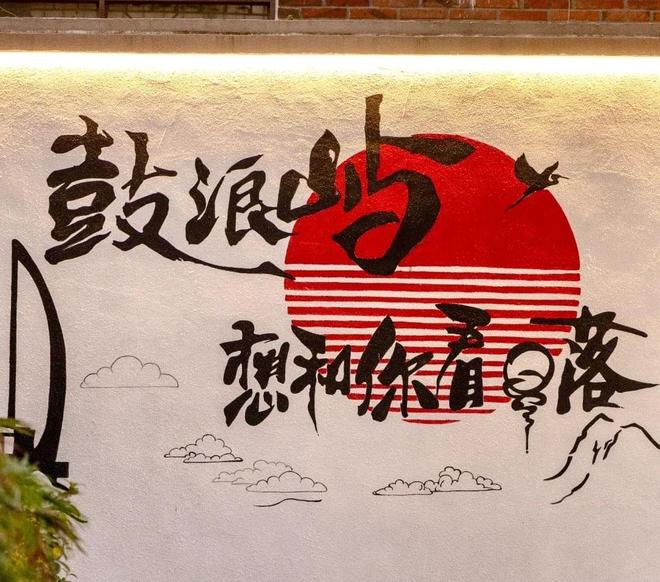 鼓浪屿
想和你看日落